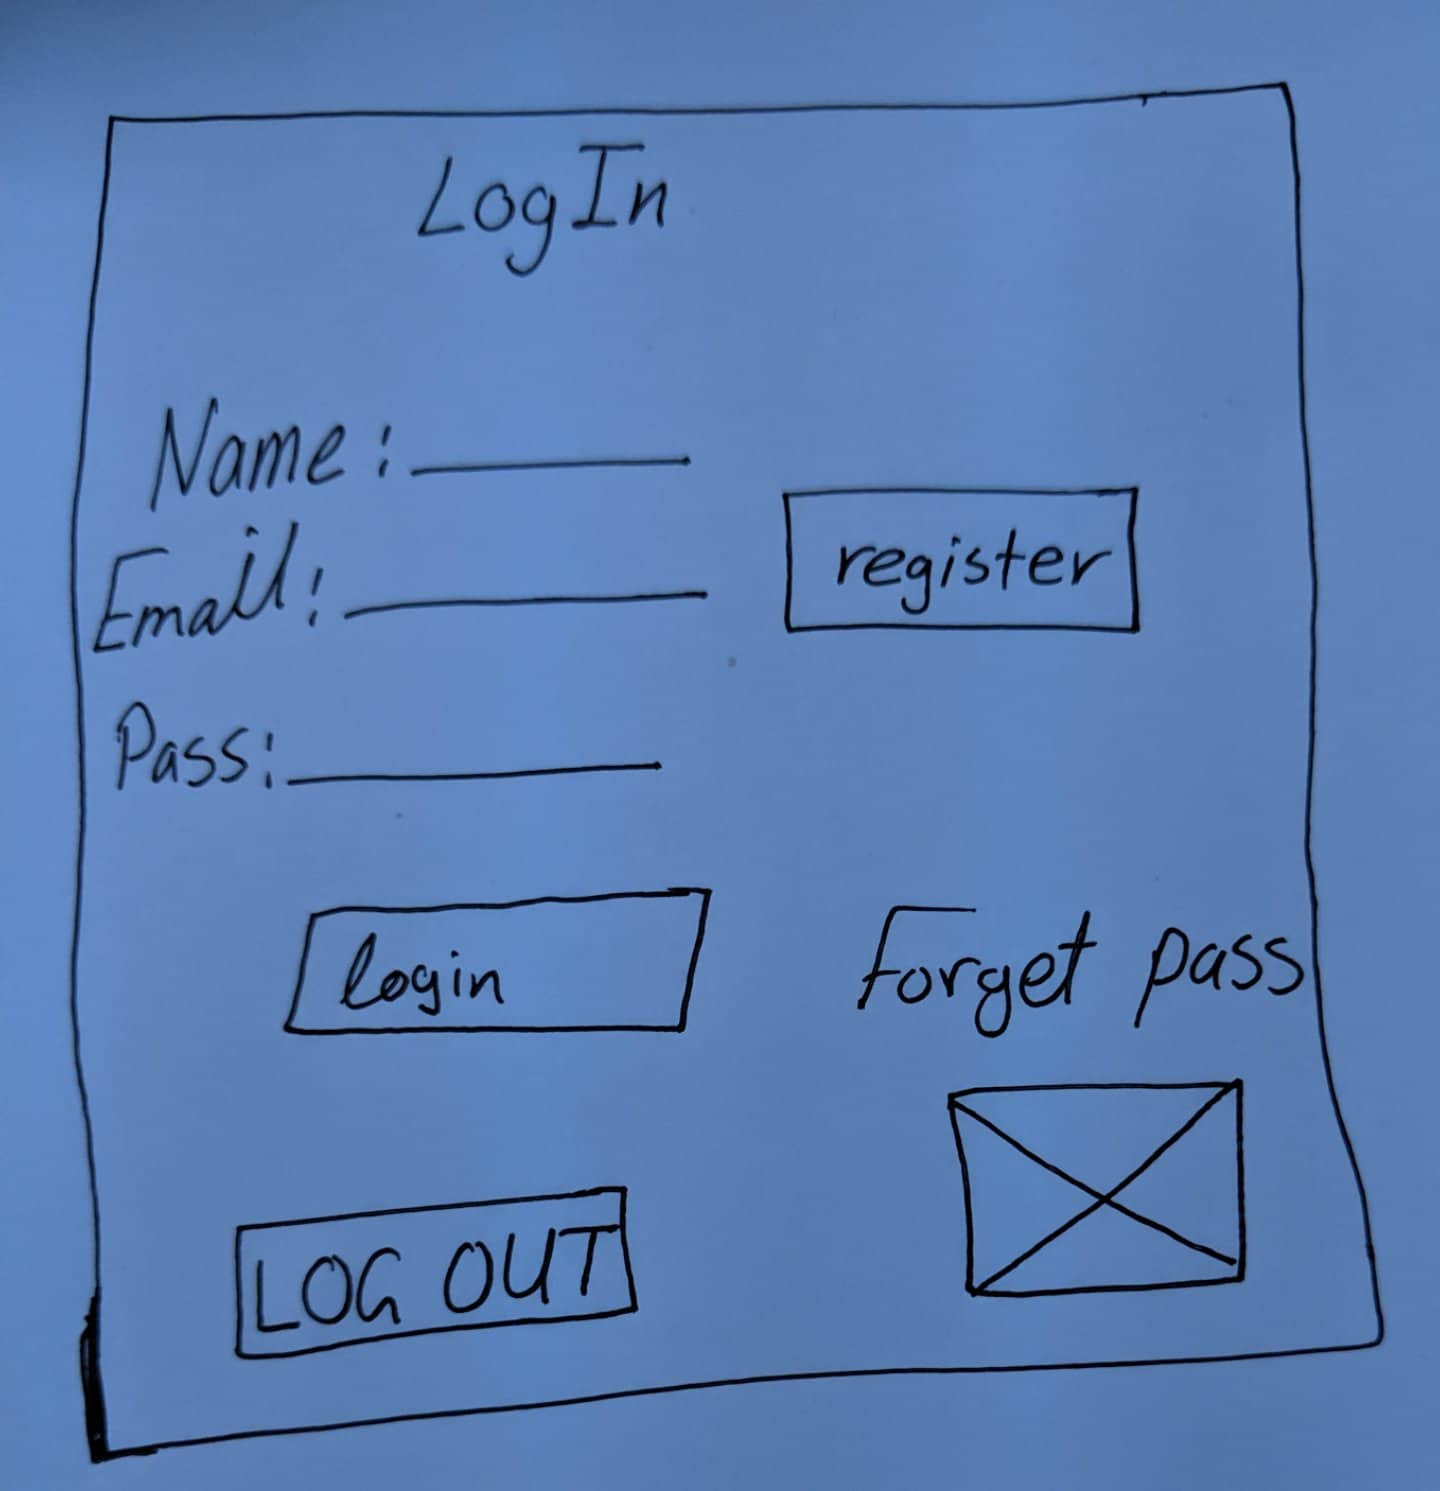 LogIn
Name:
Email:
register
Pass:
login
Forget pass
LOG OUT